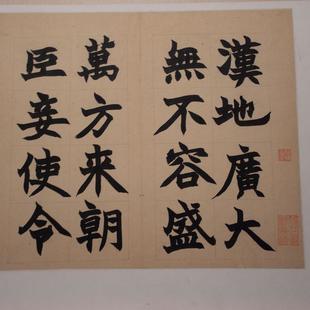 漢地廣大
無不容盛
萬方来朝
臣妾使令